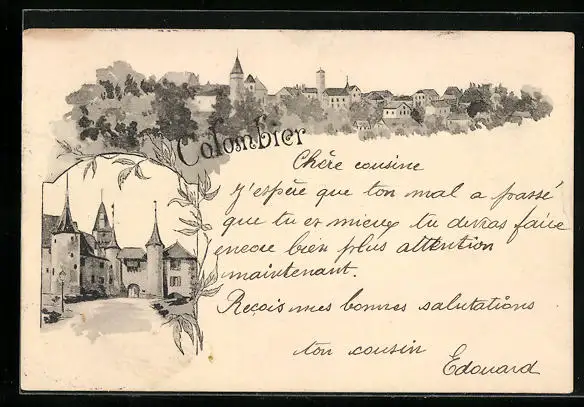 Colombier
Chère cousine
J'espère que ton mal a passé
que tu es mieux tu devras faire
encore bien plus attention
maintenant.
Reçois mes bonnes salutations
ton cousin
Edouard